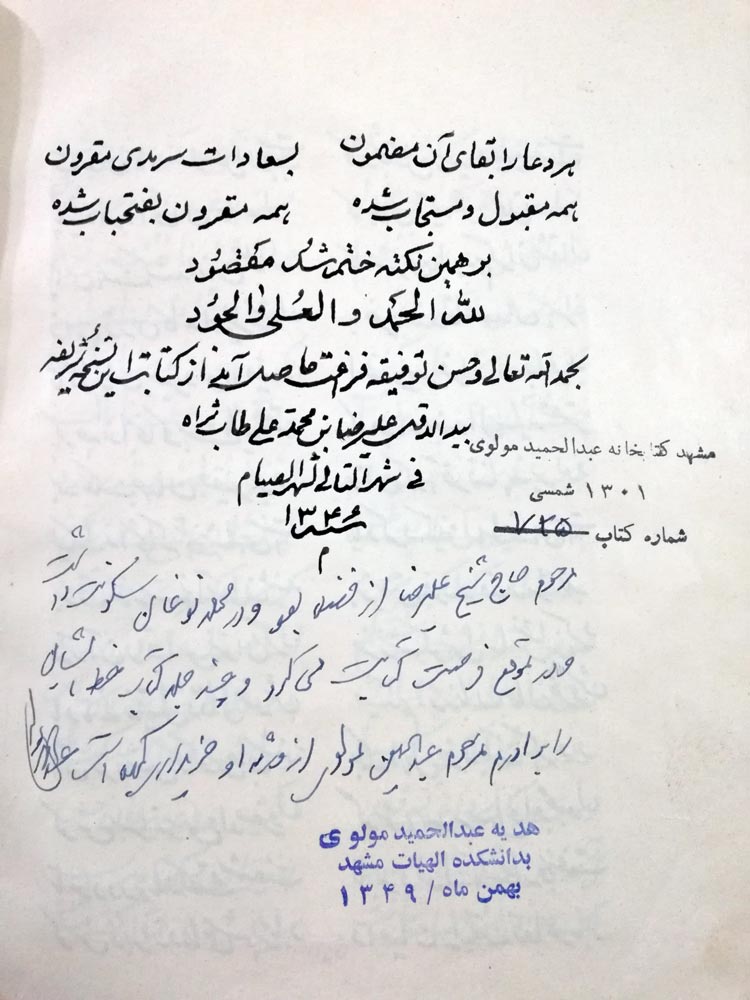 هر دعا را بقای آن مضمون بسعادات سرمدی مقرون
همه مقبول و مستجاب شده همه مقرون بفتحباب شده
بر همین نکته ختم شد مقصود
لله الحمد والعلی والجود
بحمد الله تعالی و حسن توفیقه فراغت حاصل آمد از کتابت این نسخه شریفه
بید الاقل علیرضا بن محمد علی طاب ثراه
فی شهر التالی لشهر الصیام
سنه ۱۳۴۶
م
مشهد کتابخانه عبدالحمید مولوی
۱۳۰۱ شمسی
شماره کتاب ۷۲۵
مرحوم حاج شیخ علیرضا از فضلاء بود و در محله نوغان سکونت داشت
و در موقع فرصت کتابت می کرد و چند جلد کتاب خط ایشان
را برادرم مرحوم عبدالحسین مولوی از ورثه او خریداری کرده است
هدیه عبدالحمید مولوی
بدانشکده الهیات مشهد
بهمن ماه / ۱۳۴۹